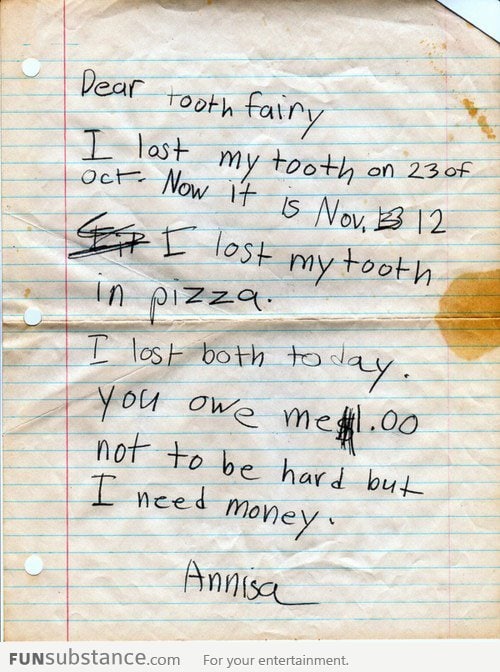 Dear tooth fairy
I lost my tooth on 23 of
oct. Now it is Nov. 12
I lost my tooth
in pizza.
I lost both today.
you owe me $1.00
not to be hard but
I need money.
Annisa
FUNsubstance.com For your entertainment.